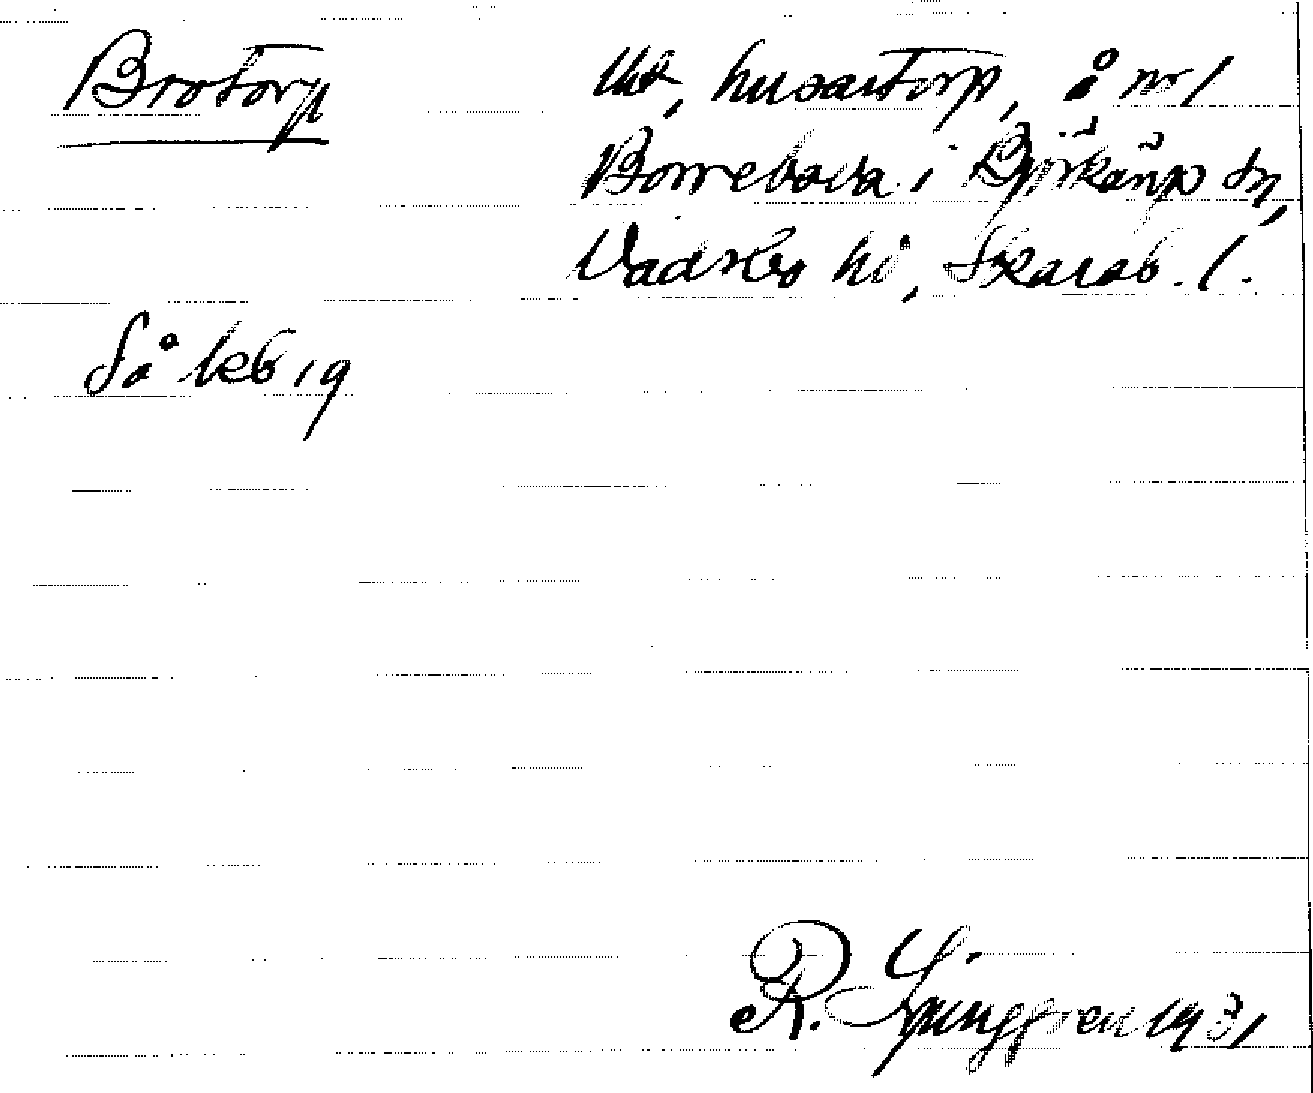 Brotorp
Utt, husartorp, å nr 1
Borreboda i Björkäng sn,
Vadsbo hd, Skarab. l.
Så kb 19
R. Ljunggren 1931